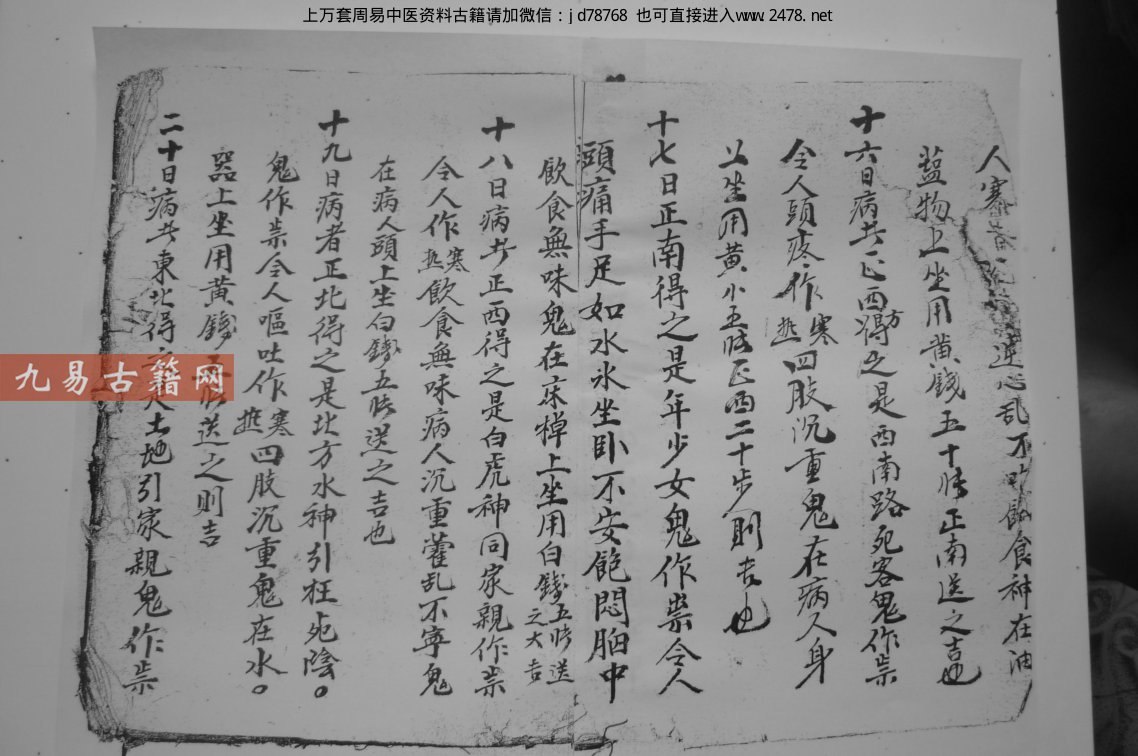 上万套周易中医资料古籍请加微信：jd78768 也可直接进入www.2478.net
人寒 逆心乱不 飲食神在油
藍物上坐用黄錢五十 正南送之吉也
十六日病 正西方得之是西南路死客鬼作祟
令人頭疼作寒热四肢沉重鬼在病人身
上坐用黄小五 正西二十步則吉也
十七日正南得之是年少女鬼作祟令人
頭痛手足如水氷坐卧不安飽悶胸中
飲食無味鬼在床 上坐用白錢五 送之大吉
十八日病 正西得之是白虎神同家親作祟
令人作寒热飲食無味病人沉重藿乱不寧鬼
在病人頭上坐白錢五 送之吉也
十九日病者正北得之是北方水神引枉死陰。
鬼作祟令人嘔吐作寒热四肢沉重鬼在水。
器上坐用黄錢 送之則吉
二十日病 東北得 土地引家親鬼作祟
九易古籍网